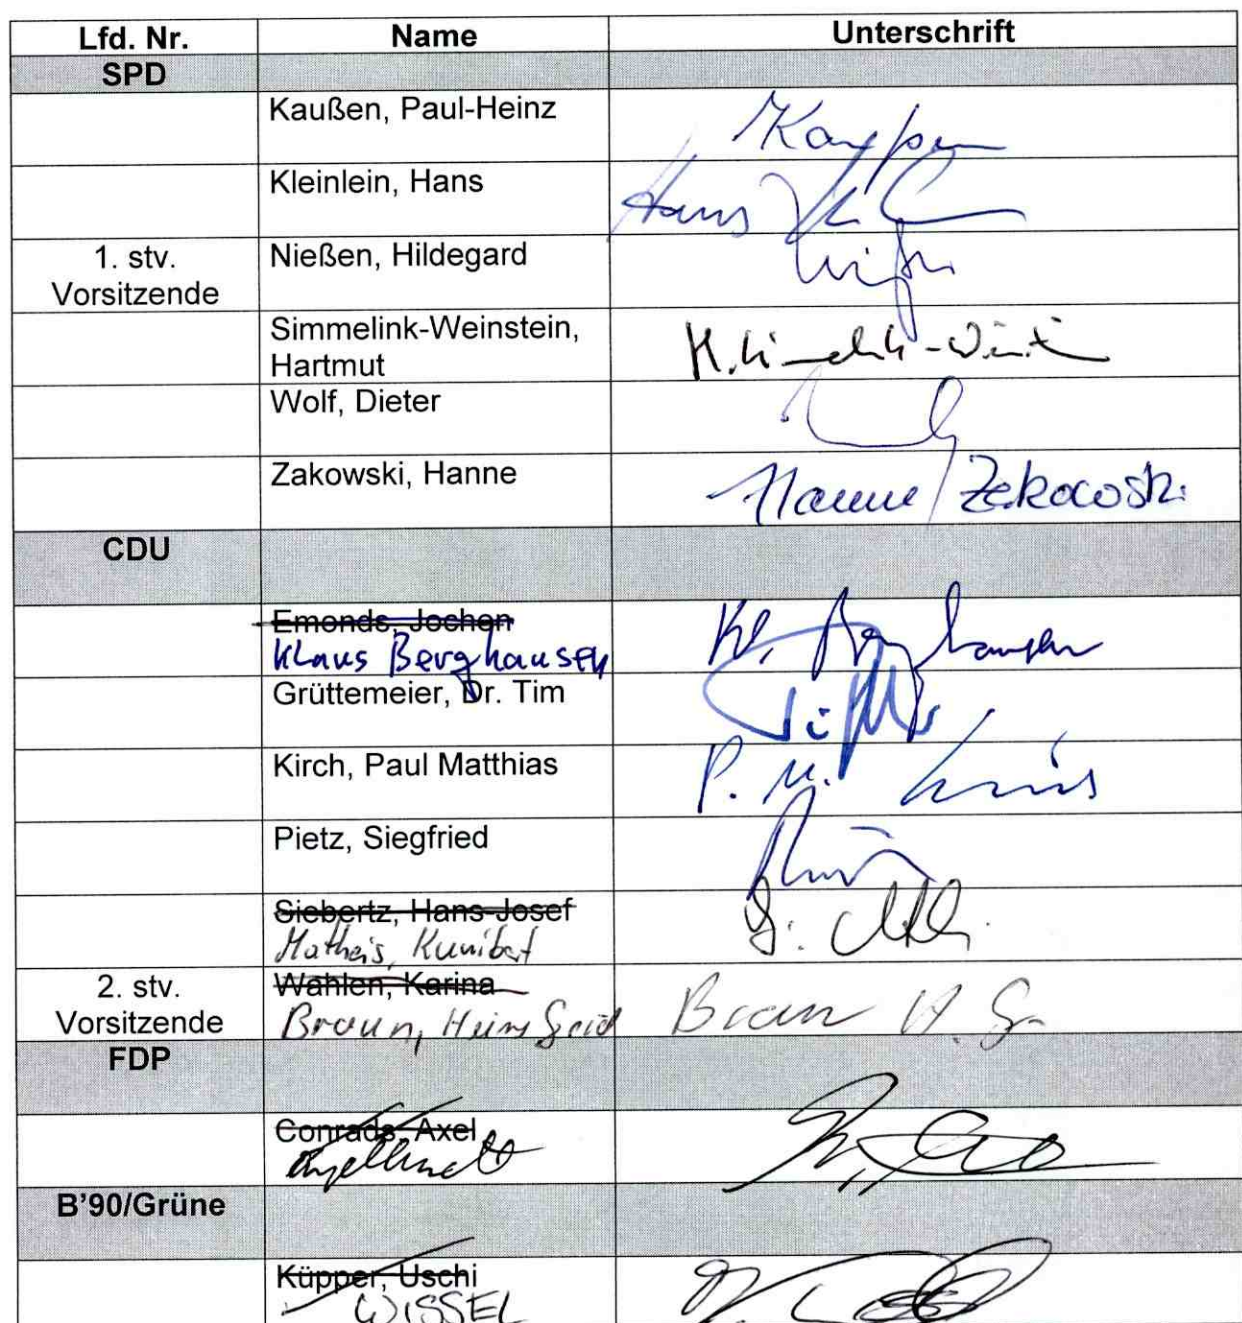 Lfd. Nr. Name Unterschrift
SPD
Kaußen, Paul-Heinz
Kleinlein, Hans Hans
1. stv. Vorsitzende Nießen, Hildegard
Simmelink-Weinstein,
Hartmut
Wolf, Dieter
Zakowski, Hanne Hanne Zakowski
CDU
Emonds, Jochen
Klaus Berghausen Kl. Berghausen
Grüttemeier, Dr. Tim
Kirch, Paul Matthias P. M. Kirch
Pietz, Siegfried
Siebertz, Hans-Josef
Matheis, Kunibert
2. stv. Vorsitzende Wahlen, Karina
Braun, Hans Gerd Braun H. G.
FDP
Conrads, Axel
Engelhardt
B'90/Grüne
Küpper, Uschi
WISSEL